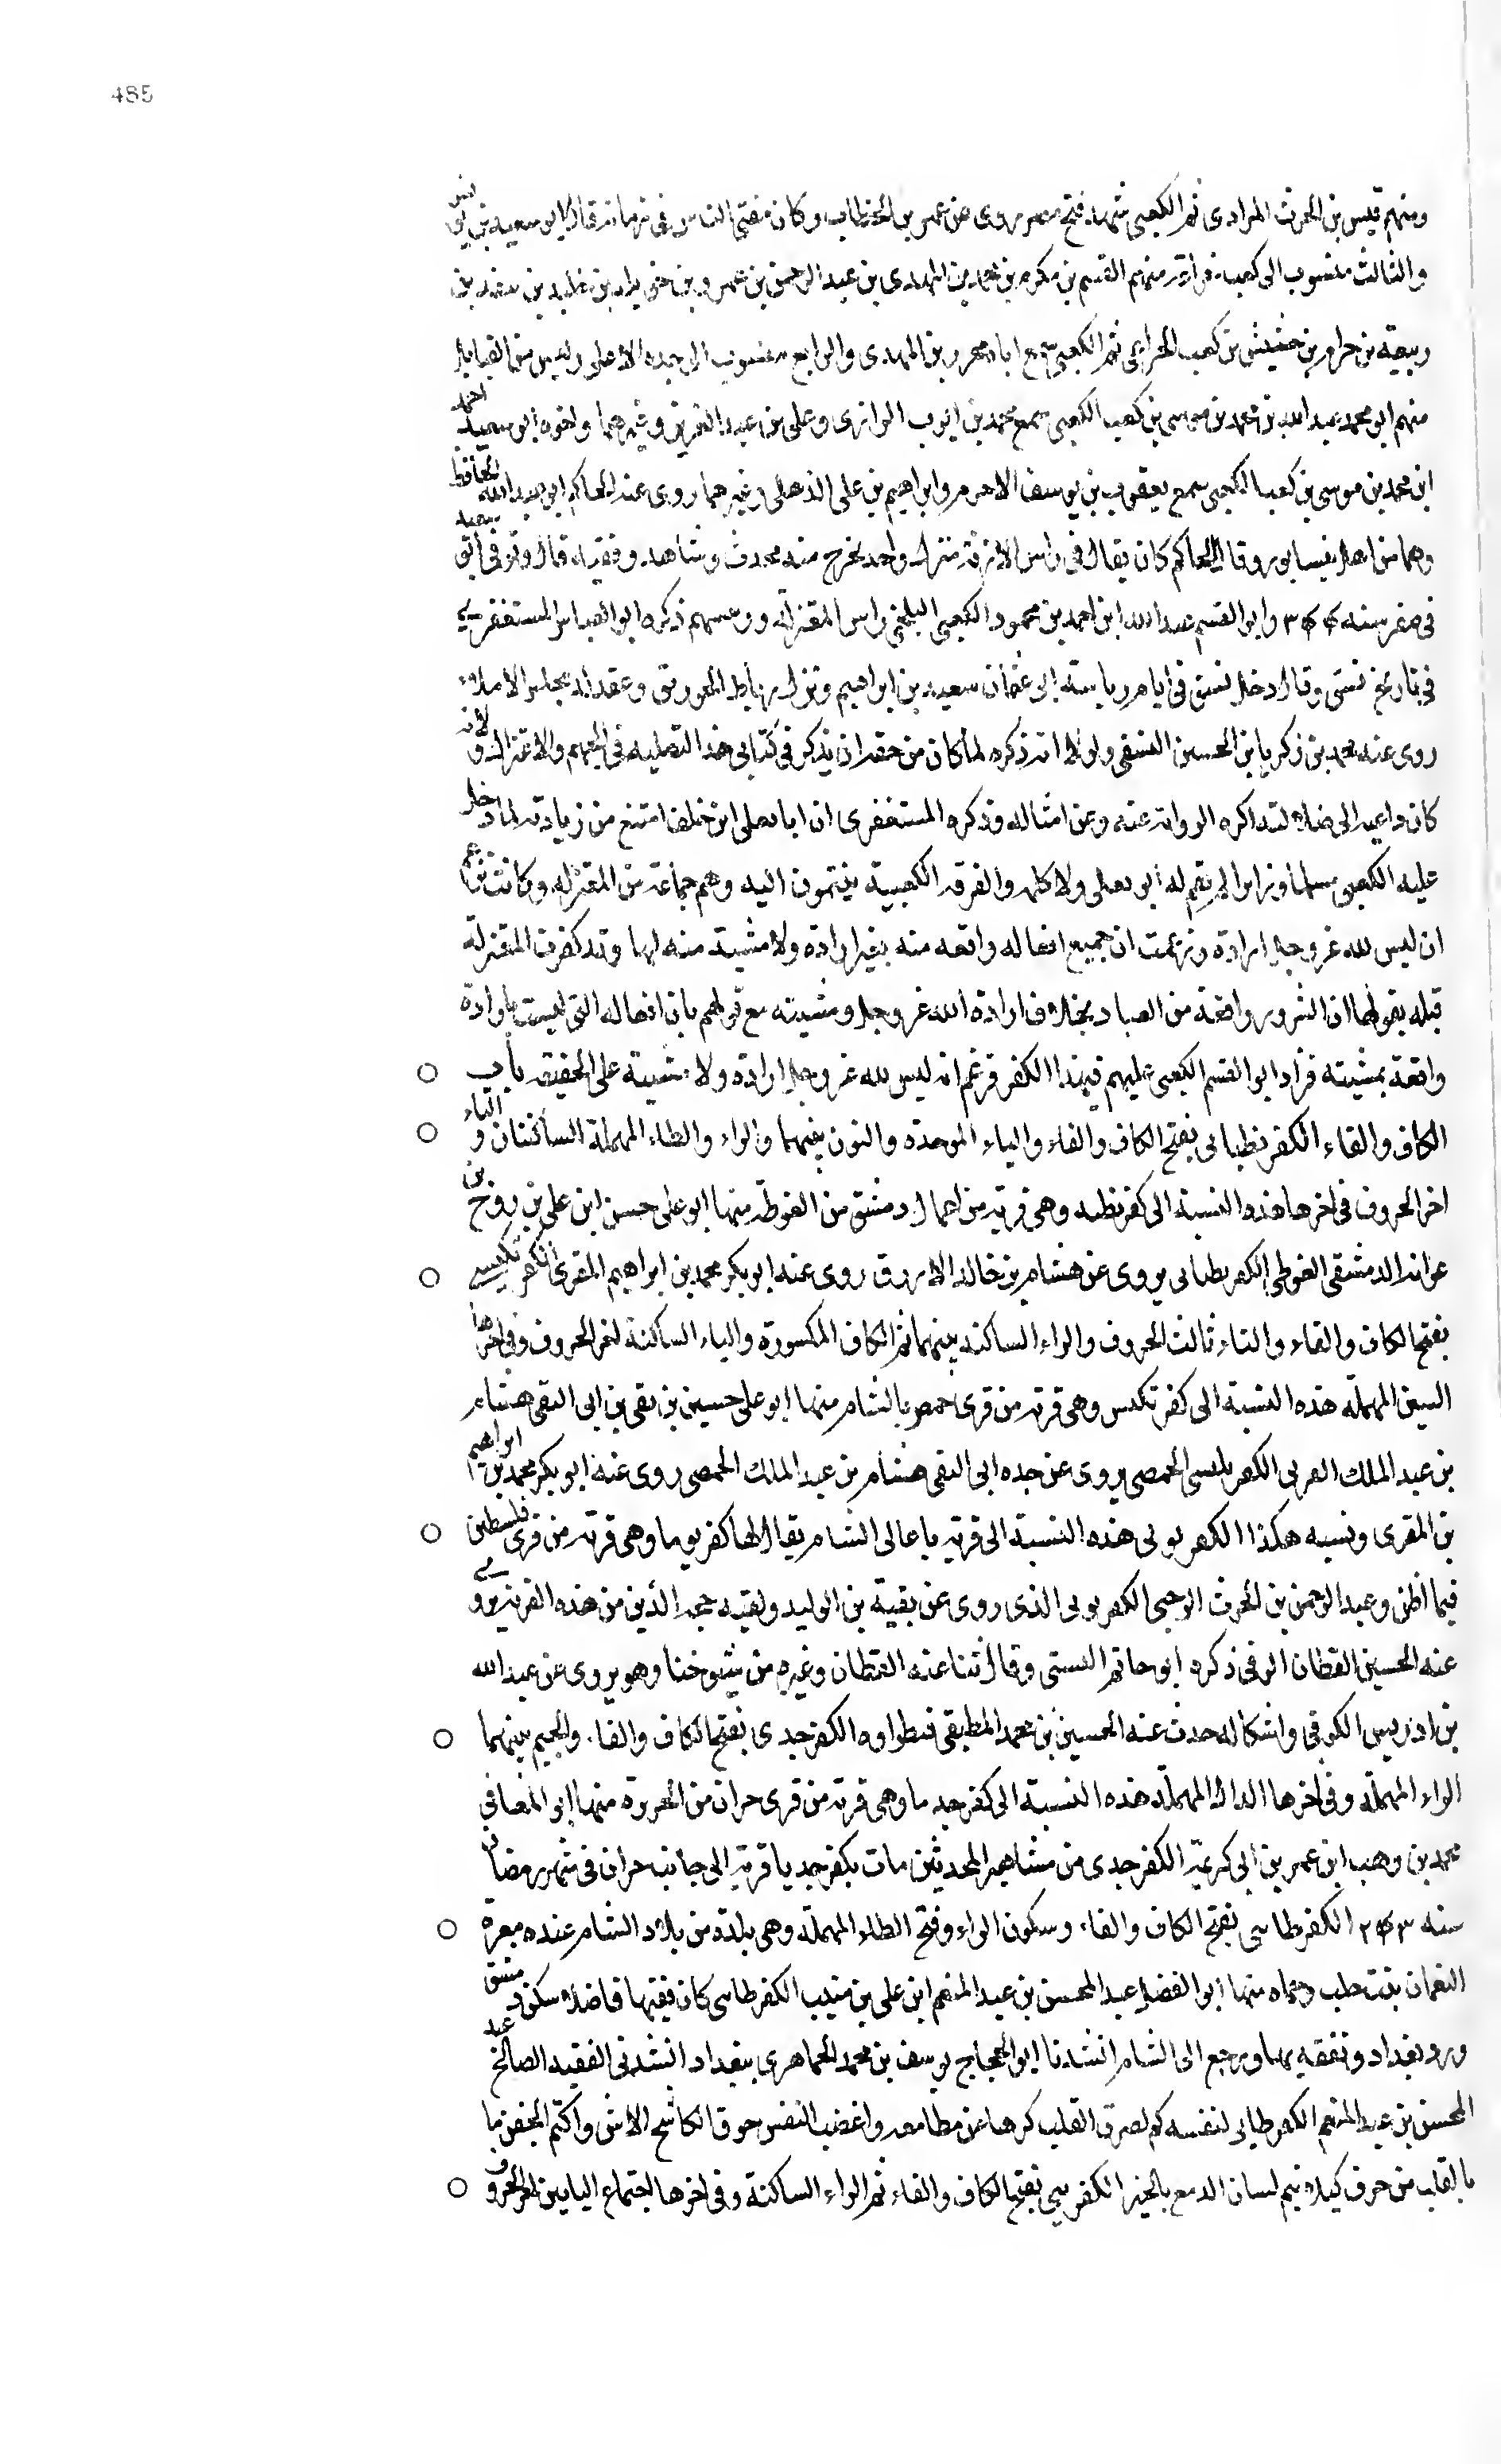 485
ومنهم قيس بن الحرث المرادى ثم الكعبى شهد فتح مصر يروى عن عمر بن الخطاب وكان مفتى الناس فى زمانه قاله ابو سعيد بن يونس
والثالث منسوب الى كعب منهم القسم بن مكرم بن محمد بن المهدى بن عبد الرحمن بن عمرو بن خويلد بن خليد بن منقذ بن
ربيعة بن حرام بن حبيش بن كعب الخزاعى ثم الكعبى سمع اباه محرز بن المهدى والرابع منسوب الى جده الاعلى وليس من القبايل
منهم ابو محمد عبد الله بن محمد بن موسى بن كعب الكعبى سمع محمد بن ايوب الرازى وعلى بن عبد العزيز وغيرهما واخوه ابو سعيد احمد
ابن محمد بن موسى بن كعب الكعبى سمع يعقوب بن يوسف الاخرم وابراهيم بن على الذهلى وغيرهما روى عنه الحاكم ابو عبد الله الحافظ
وهما من اهل نيسابور وقال الحاكم كان يقال فى راس الازقة منزل واحد يخرج منه محدث وشاهد وفقيه قال وتوفى ابو سعيد
فى صفر سنه وابو القسم عبد الله ابن احمد بن محمود الكعبى البلخى راس المعتزلة وريسهم ذكره ابو العباس المستغفرى
فى تاريخ نسف وقال دخل نسف فى ايام رياسة ابى عثمان سعيد بن ابراهيم ونزل رباط الجوربق وعقد له مجلس الاملاء
روى عنه محمد بن زكريا بن الحسين النسفى ولولا انه ذكره لما كان من حقه ان يذكر فى كتابى هذا لتصلبه فى التجهم والاعتزال ولانه
كان داعيه الى ضلاله لتداكره الرواية عنه وعن امثاله وذكره المستغفرى ان ابا يعلى ابن خلف امتنع من زيادته لما دخل
عليه الكعبى مسلما وزايرا لم يقم له ابو يعلى ولا كلمه والفرقه الكعبية ينتمون اليه وهم جماعة من المعتزله وكانت تزعم
ان ليس لله عز وجل ارادة وزعمت ان جميع افعاله واقعه منه بغير ارادة ولا مشية منه لها وقد كفرت المعتزلة
قبله بقولها ان الشرور واقعة من العباد بخلاف ارادة الله عز وجل ومشيته مع قولهم بان افعاله التى ليست بارادة
واقعة بمشيته فزاد ابو القسم الكعبى عليهم فى هذا الكفر فزعم انه ليس لله عز وجل ارادة ولا مشية على الحقيقه باب
الكاف والفاء الكفر نطيانى بفتح الكاف والفاء والياء الموحدة والنون بينهما والراء والطاء المهملة الساكنتان والياء
اخر الحروف فى اخرها هذه النسبة الى كفر بطنه وهى قرية من اعمال دمشق من الغوطه منها ابو على حسن ابن على بن روح بن
عوانه الدمشقى الغوطى الكفربطنانى يروى عن هشام بن خالد الازرق روى عنه ابو بكر محمد بن ابراهيم المقرى الكفر تكيسى
بفتح الكاف والفاء والتاء ثالث الحروف والراء الساكنة بينهما ثم الكاف المكسورة والياء الساكنة اخر الحروف وفى اخرها
السين المهملة هذه النسبة الى كفر تكيس وهى قرية من قرى حمص بالشام منها ابو على حسين بن تقى بن ابى التقى هشام
بن عبد الملك العربى الحمصى يروى عن جده ابى التقى هشام بن عبد الملك الحمصى روى عنه ابو بكر محمد بن ابراهيم
بن المقرى ونسبه هكذا الكفريونى هذه النسبة الى قرية باعالى الشام يقال لها كفريوما وهى قرية من قرى فلسطين
فيما اظن وعبد الرحمن بن الحرث الرحبى الكفريونى الذى روى عن بقية بن الوليد ولقبه جحدر الذين من هذه القرية يروى
عنه الحسين القطان الرقى ذكره ابو حاتم البستى وقال ثنا عنه القطان وغيره من شيوخنا وهو يروى عن عبد الله
بن ادريس الكوفى واشكاله حدث عنه الحسين بن محمد المطبقى الكفرجدى بفتح الكاف والفاء والجيم بينهما
الراء المهملة وفى اخرها الدال المهملة هذه النسبة الى كفر جديا وهى قرية من قرى حران من الجزيرة منها ابو المعافى
محمد بن وهب ابن عمر بن ابى كريمة الكفرجدى من مشاهير المحدثين مات بكفر جديا قرية الى جانب حران فى شهر رمضان
سنه الكفرطابى بفتح الكاف والفاء وسكون الراء وفتح الطاء المهملة وهى بلدة من بلاد الشام عنده معرة
النعمان بين حلب وحماه منها ابو الفضل عبد المحسن بن عبد المنعم ابن على بن منيب الكفرطابى كان فقيها فاضلا سكن دمشق
ورد بغداد وتفقه بها ورجع الى الشام انشدنا ابو الحجاج يوسف بن محمد الجماهرى ببغداد انشدنى الفقيه الصالح عبد
المحسن بن عبد المنعم الكفرطابى لنفسه كم لصرف القلب كرها عن مطامعه واغضب النفس خوف الكاشح الاشر واكتم الجفن ما
بالقلب من حرق كيلا ينم لسان الدمع بالخبر الكفرييى بفتح الكاف والفاء ثم الراء الساكنة وفى اخرها اجتماع اليايين اخر الحروف